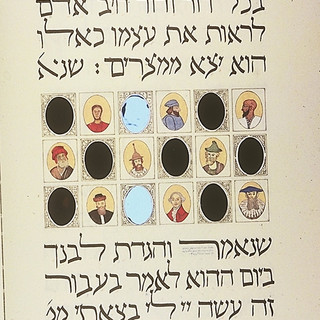 בכל דור ודור חייב אדם
לראות את עצמו כאלו
הוא יצא ממצרים: שנא
שנאמר והגדת לבנך
ביום ההוא לאמר בעבור
זה עשה יי לי בצאתי ממ